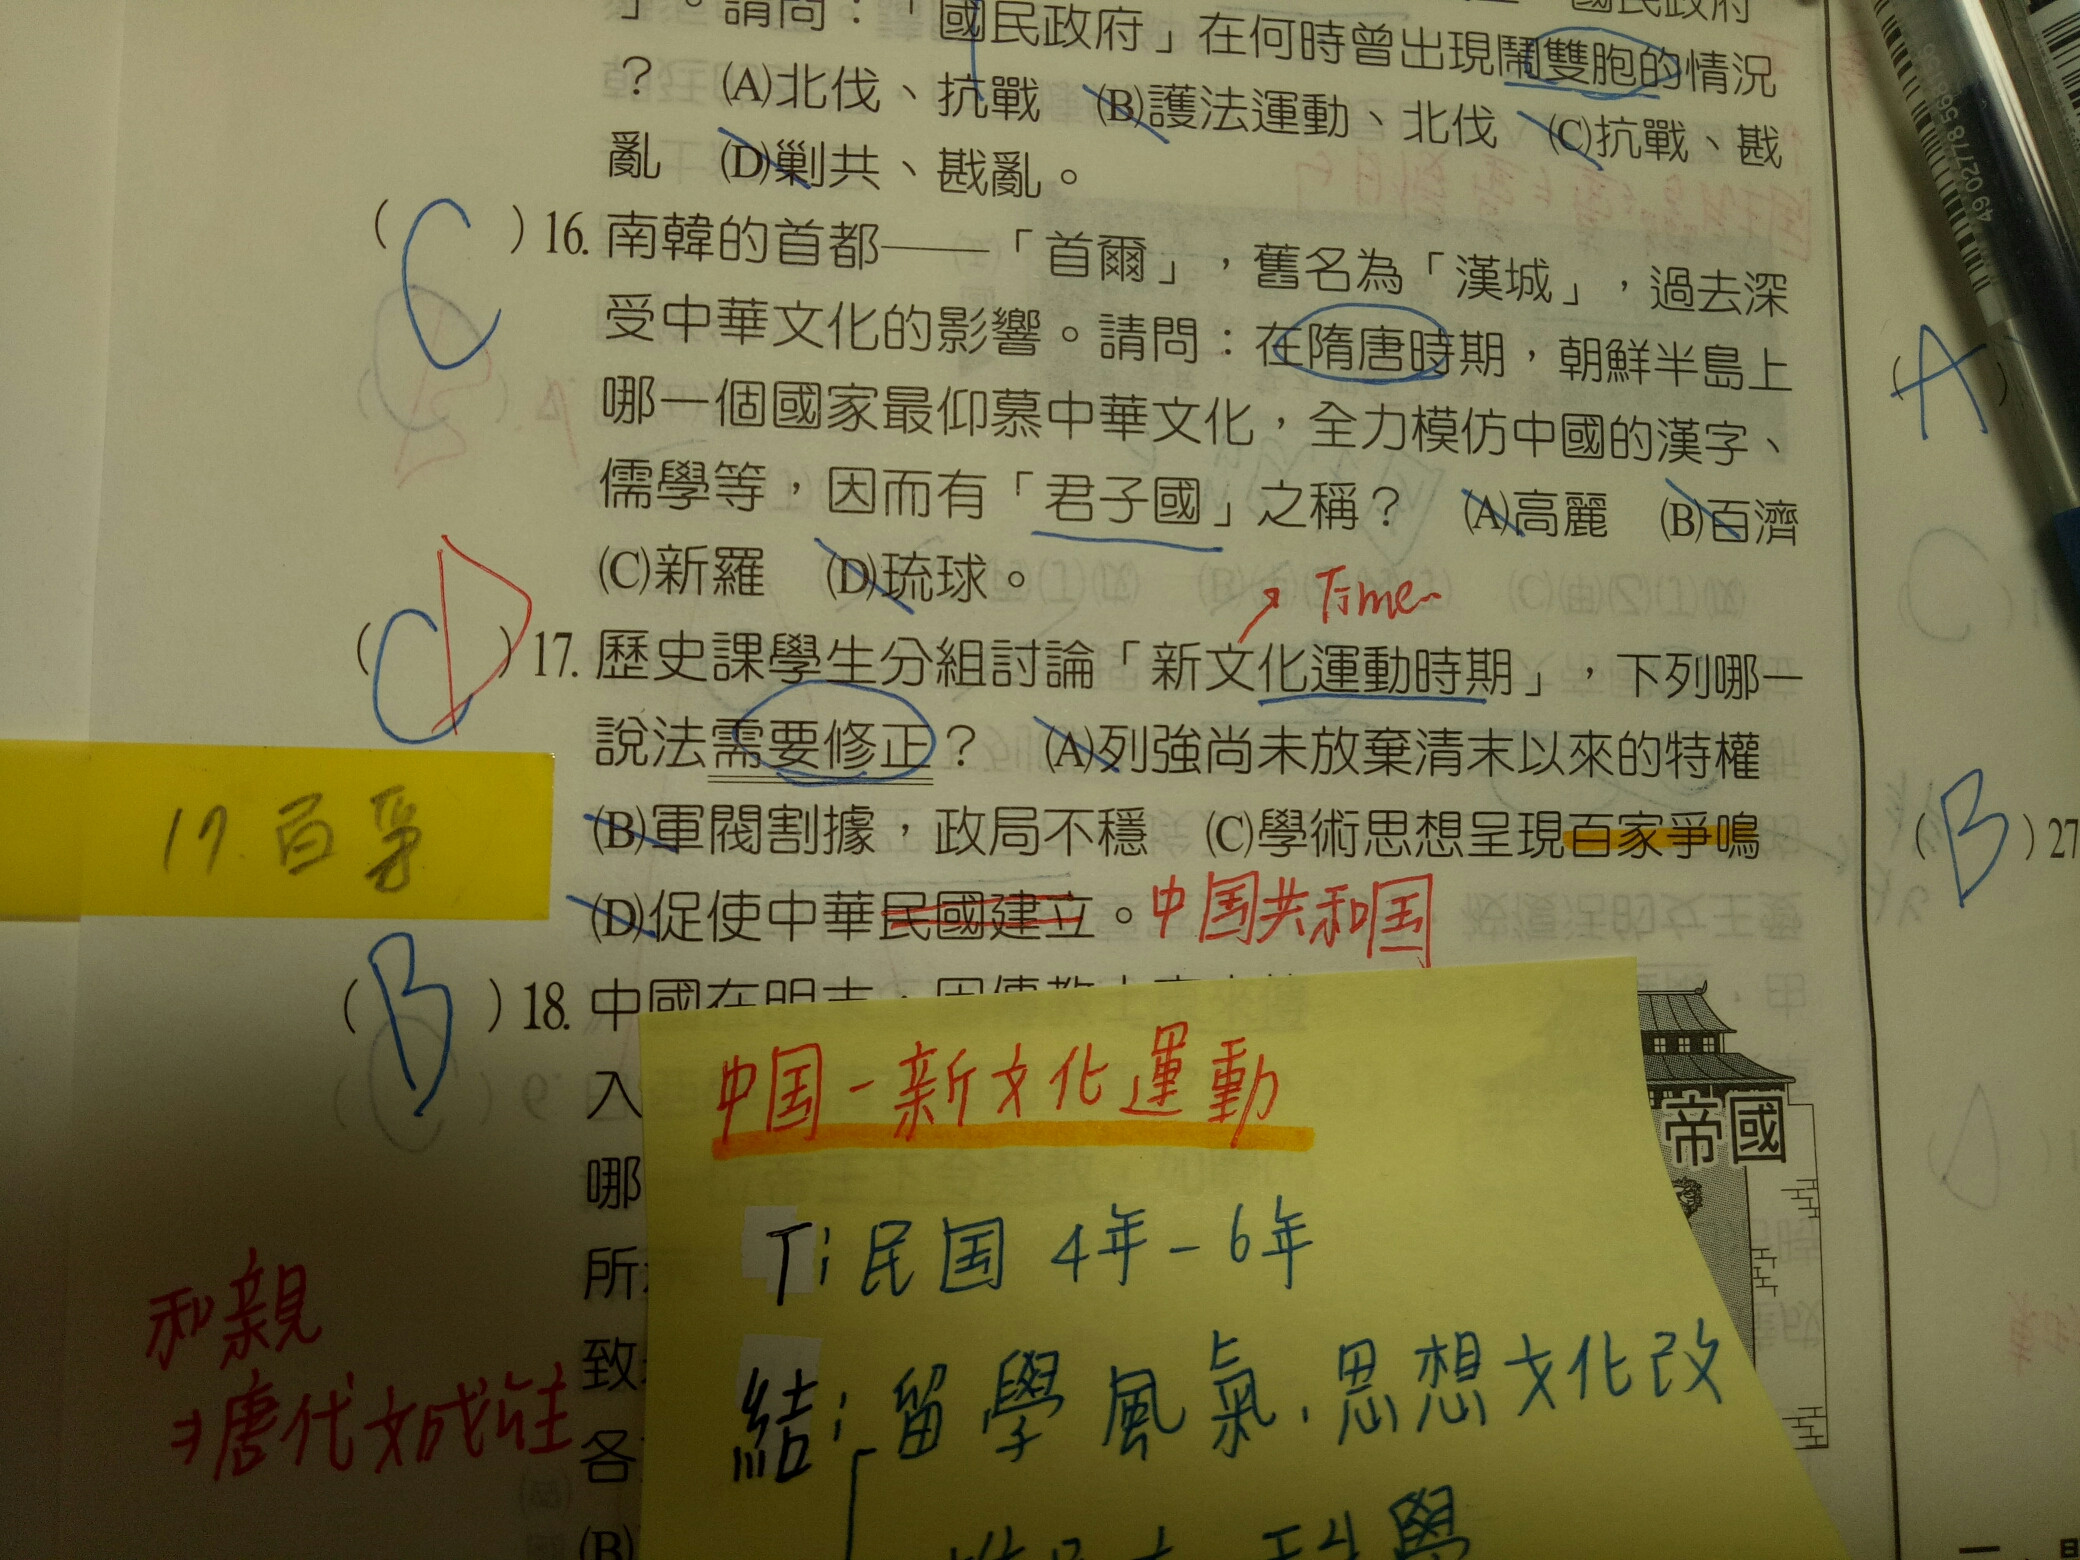 」。請問：「國民政府」在何時曾出現鬧雙胞的情況
？ (A)北伐、抗戰 (B)護法運動、北伐 (C)抗戰、戡
亂 (D)剿共、戡亂。
( C ) 16. 南韓的首都——「首爾」，舊名為「漢城」，過去深
受中華文化的影響。請問：在隋唐時期，朝鮮半島上
哪一個國家最仰慕中華文化，全力模仿中國的漢字、
儒學等，因而有「君子國」之稱？ (A)高麗 (B)百濟
(C)新羅 (D)琉球。
Time
( C D ) 17. 歷史課學生分組討論「新文化運動時期」，下列哪一
說法需要修正？ (A)列強尚未放棄清末以來的特權
(B)軍閥割據，政局不穩 (C)學術思想呈現百家爭鳴
(D)促使中華民國建立。中国共和国
17. 百爭
( B ) 18.
入
哪
所
致
各
(B)
中国-新文化運動
T: 民国 4年-6年
結: 留學風氣. 思想文化改
科學
和親
⇒唐代文成公主
帝國
( A )
( B ) 27
49 02778 568156